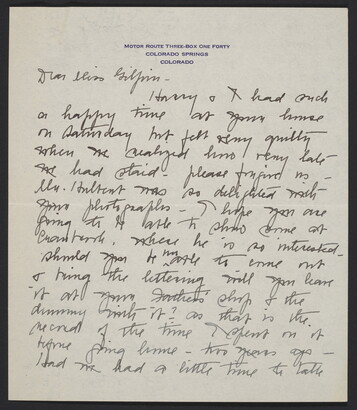 MOTOR ROUTE THREE-BOX ONE FORTY
COLORADO SPRINGS
COLORADO
Dear Miss Gilpin -
Harry & I had such
a happy time at your house
on Saturday but felt very guilty
when we realized how very late
we had staid please forgive us -
Mr. Hulbert was so delighted with
your photographs - I hope you are
going to be able to show some at
Cranbrook, where he is so interested -
should you be able to come out
& bring the lettering will you leave
it at your shop & the
dummy with it? as that is the
record of the time I spent on it
before going home - two years ago -
Had we had a little time to talk